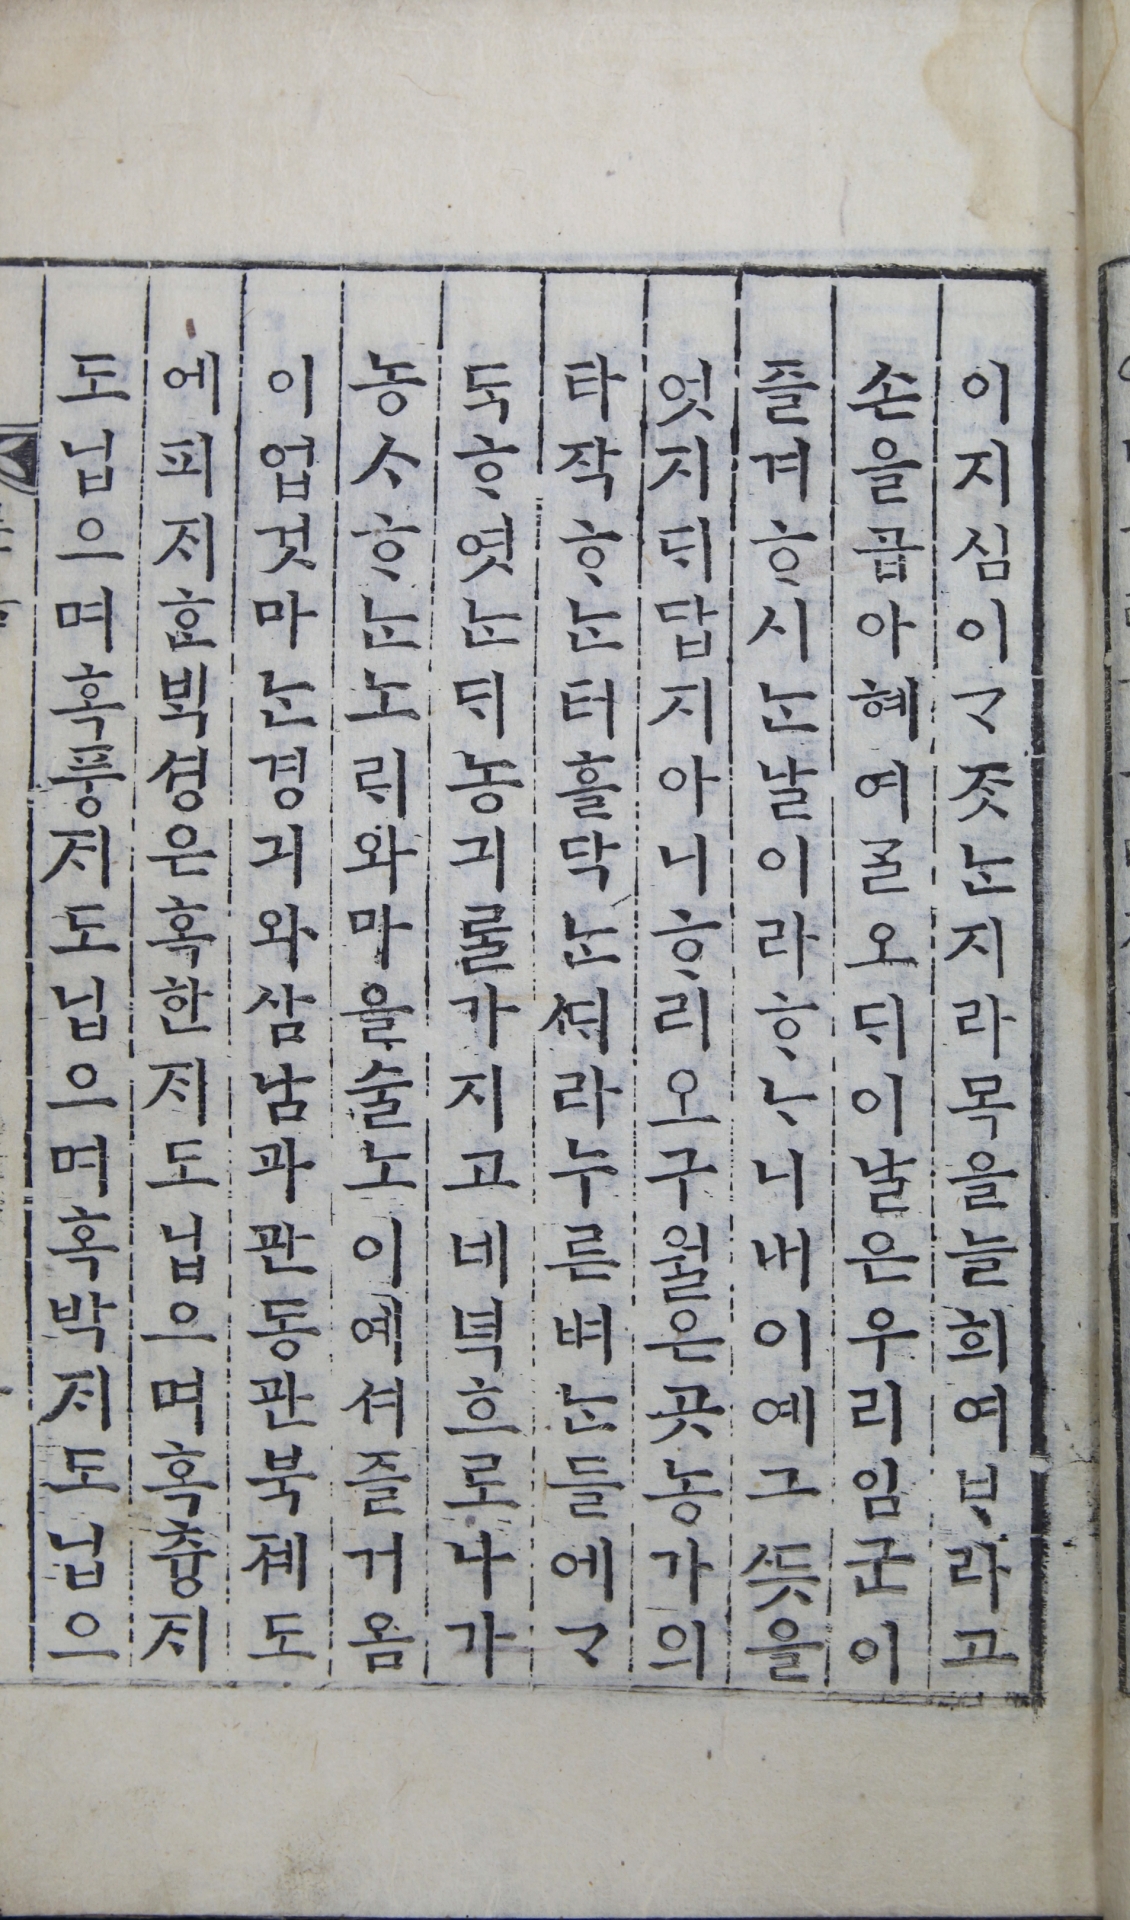 이지심이ᄀᆞᄌᆞᆺᄂᆞᆫ지라목을늘희여ᄇᆞ라고
손을곱아혜여ᄀᆞᆯ오ᄃᆡ이날은우리임군이
즐겨ᄒᆞ시ᄂᆞᆫ날이라ᄒᆞᄂᆞ니내이예그ᄯᅳᆺ을
엇지ᄃᆡ답지아니ᄒᆞ리오구월은곳농가의
타작ᄒᆞᄂᆞᆫ터흘닥ᄂᆞᆫᄯᆡ라누른벼ᄂᆞᆫ들에ᄀᆞ
ᄃᆞᆨᄒᆞ엿ᄂᆞᆫᄃᆡ농긔ᄅᆞᆯ가지고네녁흐로나가
농ᄉᆞᄒᆞᄂᆞᆫ노ᄅᆡ와마을술노이예셔즐거옴
이업것마ᄂᆞᆫ경긔와삼남과관동관북졔도
에피ᄌᆡᄒᆞᆫᄇᆡᆨ셩은혹한ᄌᆡ도닙으며혹츙ᄌᆡ
도닙으며혹풍ᄌᆡ도닙으며혹박ᄌᆡ도닙으